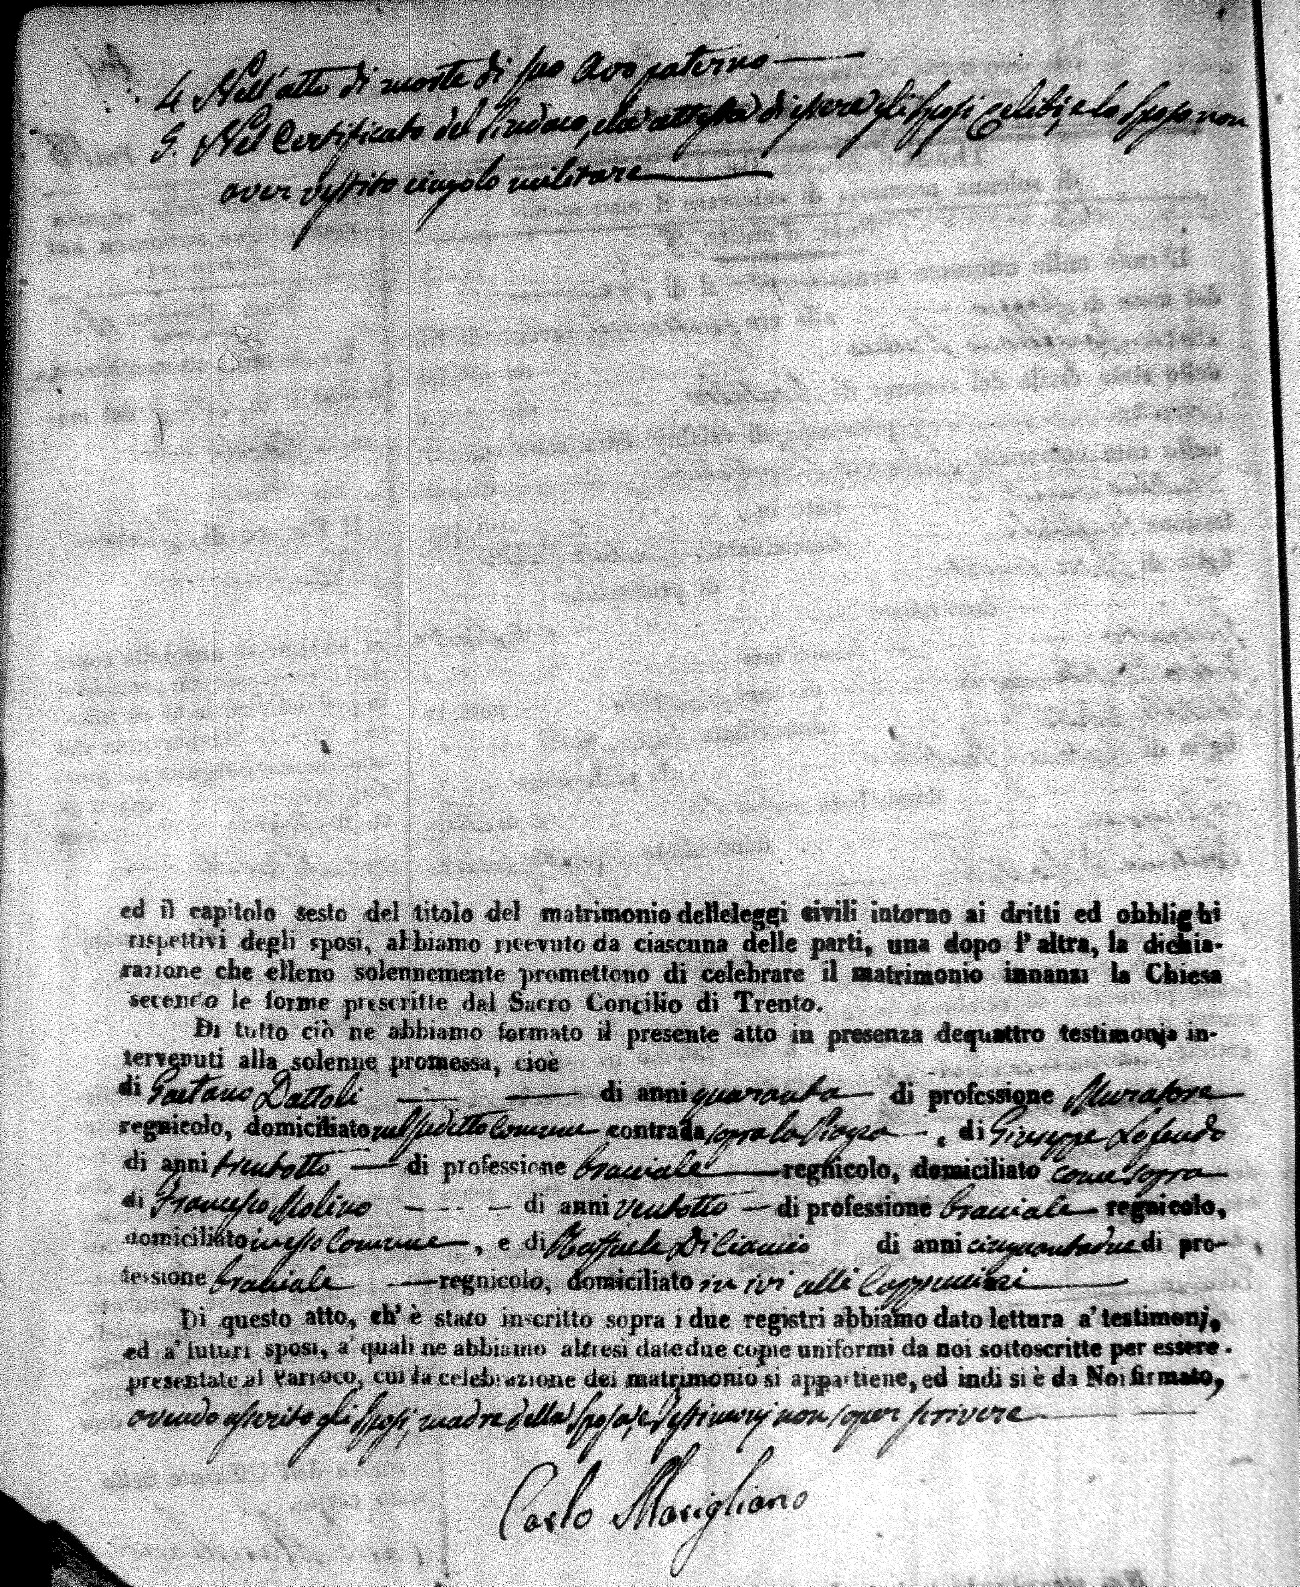 4. Nell'atto di morte di suo Avo paterno
5. Nel Certificato del Sindaco, che attesta di essere gli Sposi Celibi, e lo Sposo non
aver vestito cingolo militare
ed il capitolo sesto del titolo del matrimonio delleleggi civili intorno ai dritti ed obblighi
rispettivi degli sposi, abbiamo ricevuto da ciascuna delle parti, una dopo l'altra, la dichia-
razione che elleno solennemente promettono di celebrare il matrimonio innanzi la Chiesa
secondo le forme prescritte dal Sacro Concilio di Trento.
Di tutto ciò ne abbiamo formato il presente atto in presenza dequattro testimonj in-
tervenuti alla solenne promessa, cioè
di Gaetano Dattoli di anni quaranta di professione Muratore
regnicolo, domiciliato nel suddetto Comune contrada sopra la , di Giuseppe
di anni trentotto di professione braciale regnicolo, domiciliato come sopra
di Francesco Molino di anni ventotto di professione braciale regnicolo,
domiciliato in esso Comune , e di Raffaele di anni cinquantadue di pro-
fessione braciale regnicolo, domiciliato in ivi alli Cappuccini
Di questo atto, ch'è stato inscritto sopra i due registri abbiamo dato lettura a' testimonj,
ed a' futuri sposi, a' quali ne abbiamo altresì datedue copie uniformi da noi sottoscritte per essere
presentate al Parroco, cui la celebrazione del matrimonio si appartiene, ed indi si è da Noi firmato,
avendo asserito gli Sposi, madre della Sposa, e Testimonj non saper scrivere
Carlo Marigliano